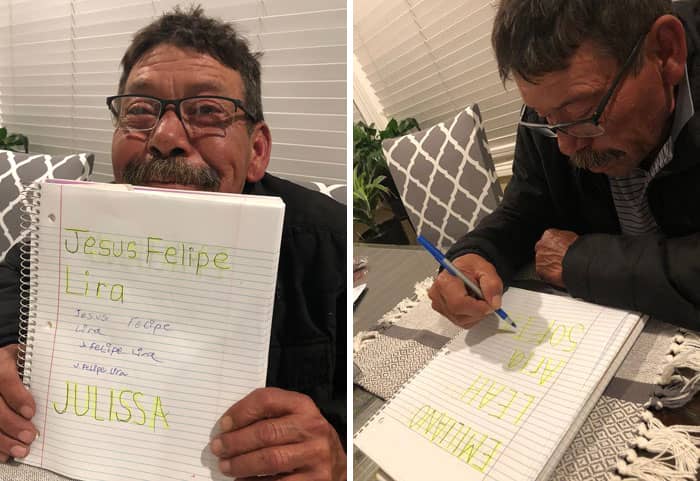 Jesus Felipe
Lira
Jesus Felipe
Lira
J. Felipe Lira
J. Felipe Lira
JULISSA
Aria
LEAH
EMILIANO